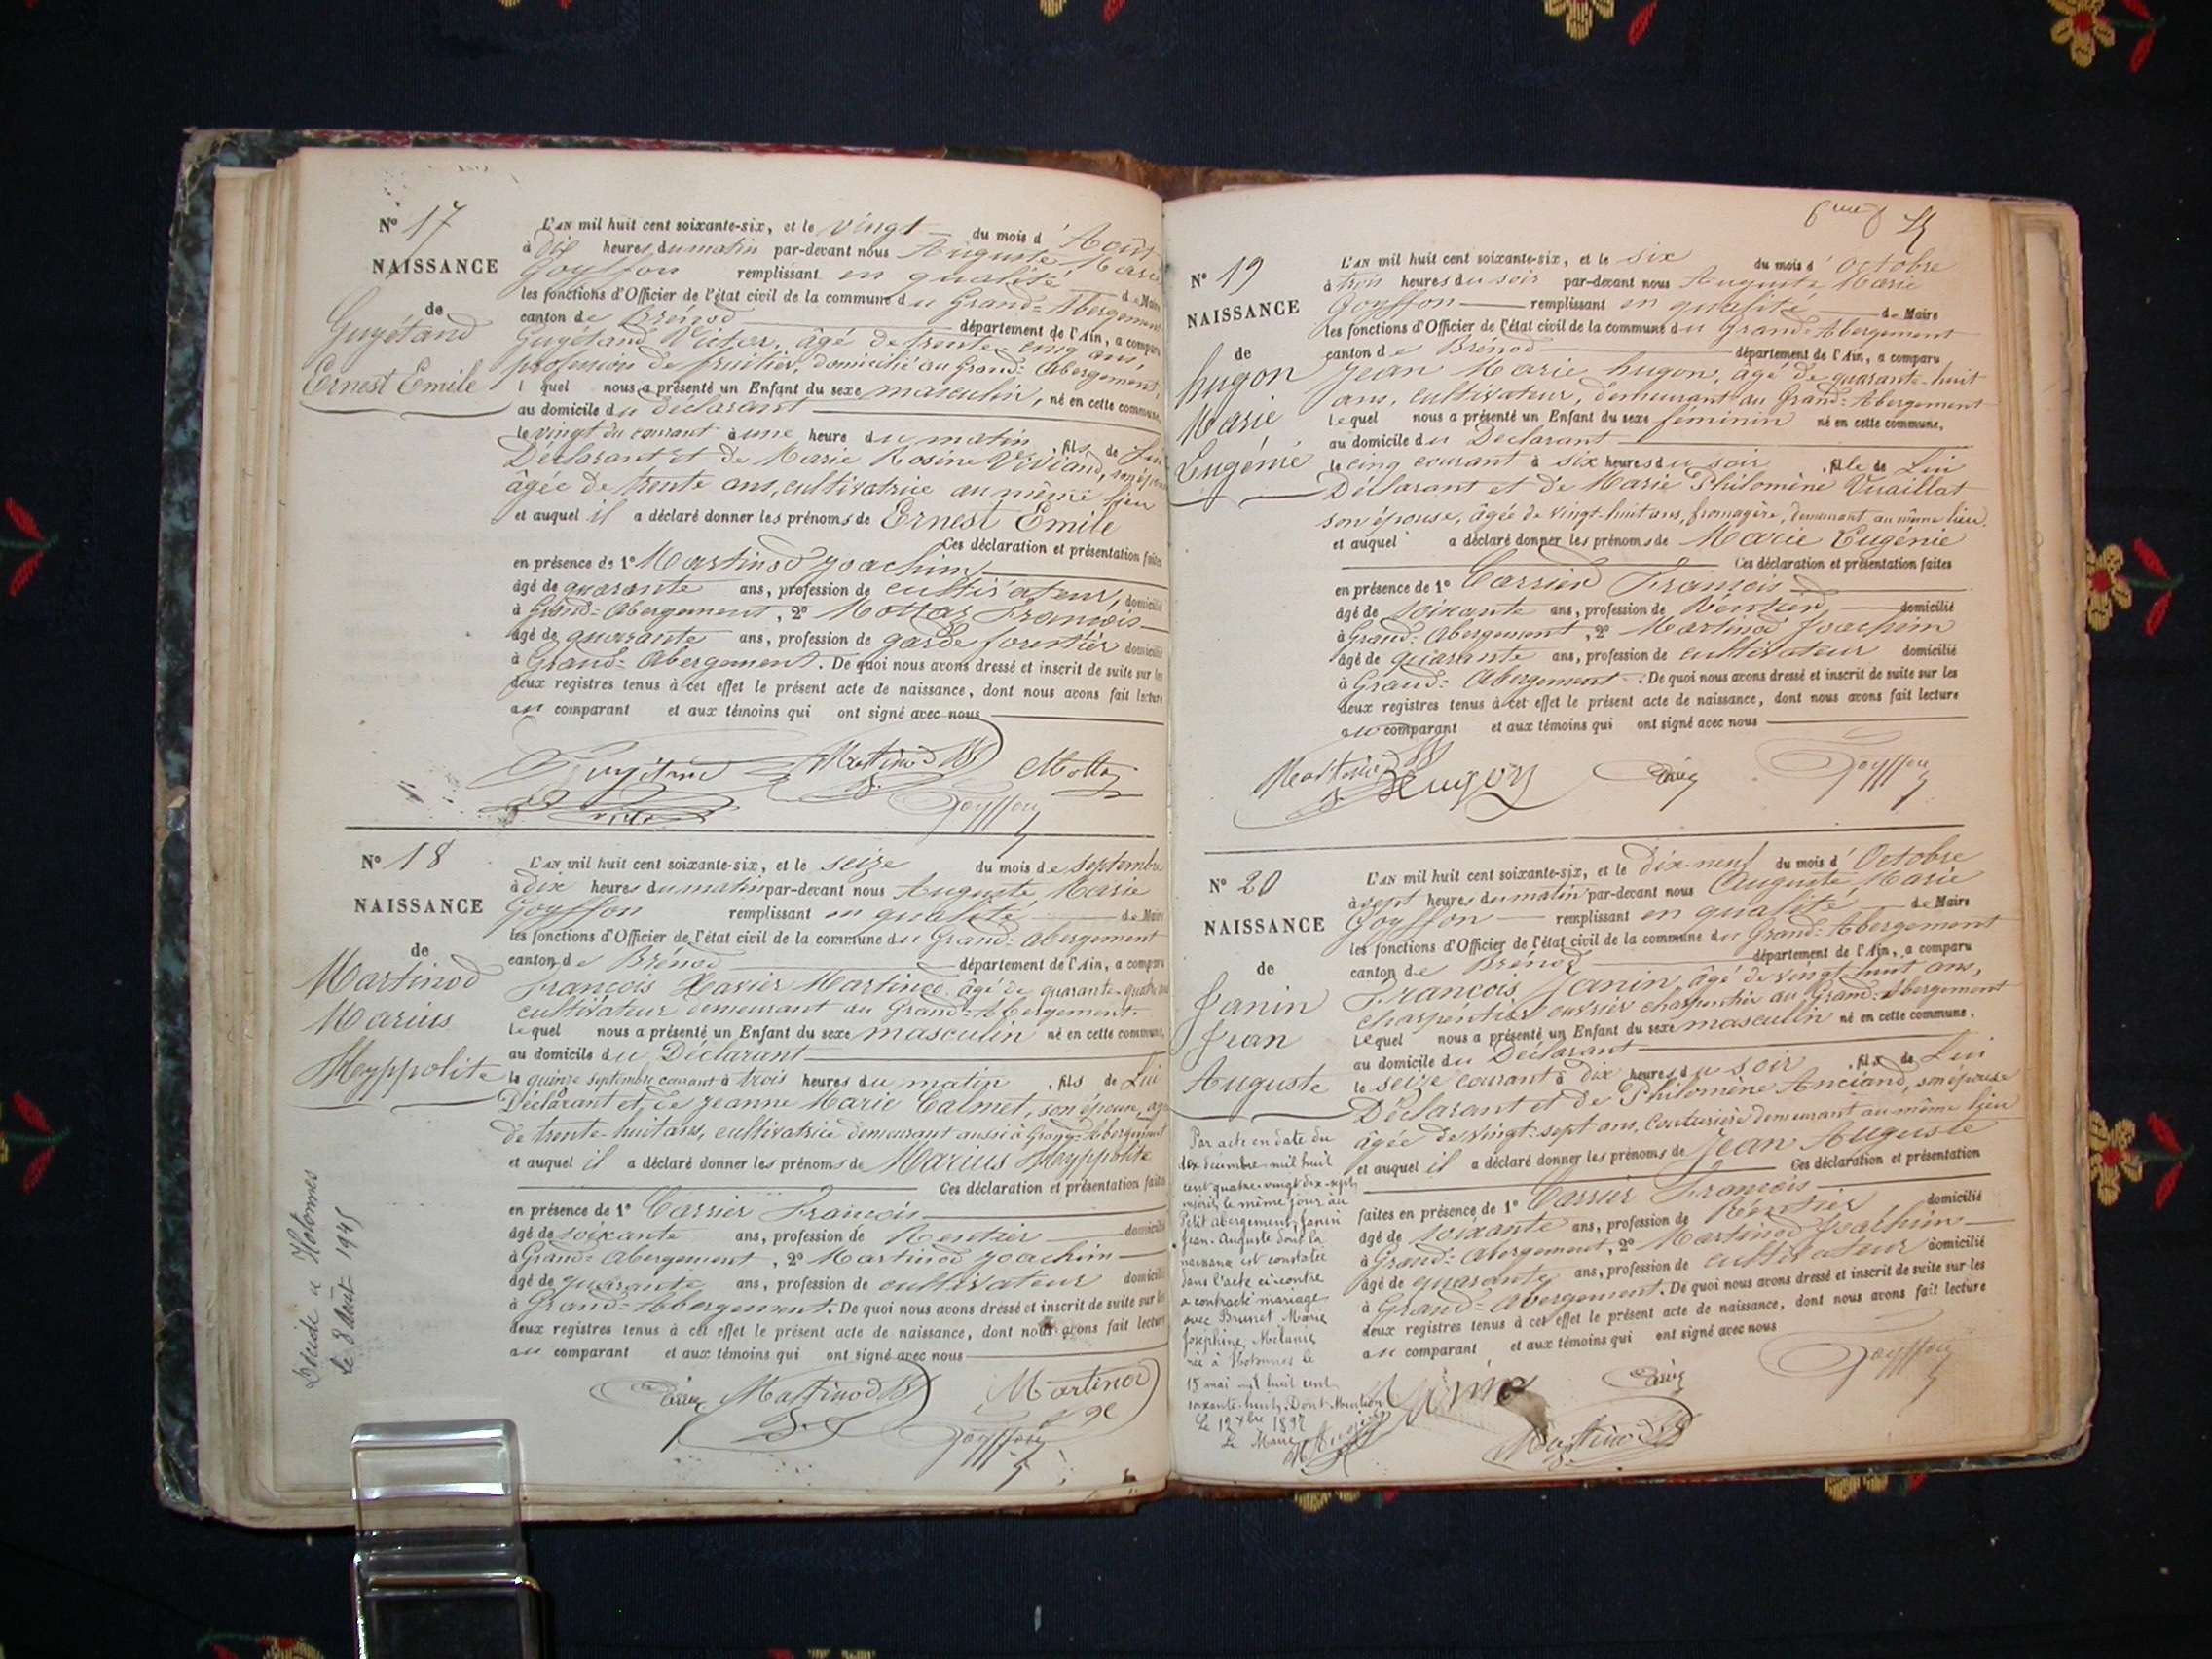 N° 17
NAISSANCE
de
Guyétand
Ernest Emile
L'AN mil huit cent soixante-six, et le vingt du mois d'Août
à dix heures du matin par-devant nous Auguste Marie
Goyffon remplissant en qualité de Maire
les fonctions d'Officier de l'état civil de la commune du Grand-Abergement
canton de Brénod département de l'Ain, a comparu
Guyétand Victor, âgé de trente cinq ans,
profession de fruitier, domicilié au Grand-Abergement,
l quel nous a présenté un Enfant du sexe masculin, né en cette commune,
au domicile du déclarant
le vingt du courant à une heure du matin, fils de Lui
Déclarant et de Marie Rosine Viviand, son épouse
âgée de trente ans, cultivatrice au même lieu
et auquel il a déclaré donner les prénoms de Ernest Emile
Ces déclaration et présentation faites
en présence de 1° Martinod Joachim
âgé de quarante ans, profession de cultivateur, domicilié
à Grand-Abergement, 2° Mottaz François
âgé de quarante ans, profession de garde forestier domicilié
à Grand-Abergement. De quoi nous avons dressé et inscrit de suite sur les
deux registres tenus à cet effet le présent acte de naissance, dont nous avons fait lecture
au comparant et aux témoins qui ont signé avec nous
Guyétand Martinod Mottaz
Goyffon
N° 18
NAISSANCE
de
Martinod
Marius
Hyppolite
Décidé à Hotonnes
le 8 Août 1945
L'AN mil huit cent soixante-six, et le seize du mois de septembre
à dix heures du matin par-devant nous Auguste Marie
Goyffon remplissant en qualité de Maire
les fonctions d'Officier de l'état civil de la commune du Grand-Abergement
canton de Brénod département de l'Ain, a comparu
François Xavier Martinod âgé de quarante-quatre ans
cultivateur demeurant au Grand-Abergement.
lequel nous a présenté un Enfant du sexe masculin né en cette commune,
au domicile du Déclarant
le quinze septembre courant à trois heures du matin, fils de Lui
Déclarant et de Jeanne Marie Calmet, son épouse, agée
de trente-huit ans, cultivatrice demeurant aussi à Grand-Abergement
et auquel il a déclaré donner les prénoms de Marius Hyppolite
Ces déclaration et présentation faites
en présence de 1° Carrier François
âgé de soixante ans, profession de Rentier domicilié
à Grand-Abergement, 2° Martinod Joachim
âgé de quarante ans, profession de cultivateur domicilié
à Grand-Abergement. De quoi nous avons dressé et inscrit de suite sur les
deux registres tenus à cet effet le présent acte de naissance, dont nous avons fait lecture
au comparant et aux témoins qui ont signé avec nous
Martinod Martinod
Goyffon
N° 19
NAISSANCE
de
hugon
Marie
Eugénie
L'AN mil huit cent soixante-six, et le six du mois d'Octobre
à trois heures du soir par-devant nous Auguste Marie
Goyffon remplissant en qualité de Maire
les fonctions d'Officier de l'état civil de la commune du Grand-Abergement
canton de Brénod département de l'Ain, a comparu
Jean Marie hugon, âgé de quarante-huit
ans, cultivateur, demeurant au Grand-Abergement
lequel nous a présenté un Enfant du sexe féminin né en cette commune,
au domicile du Déclarant
le cinq courant à six heures du soir, fille de Lui
Déclarant et de Marie Philomène Vuaillat
son épouse, âgée de vingt-huit ans, fromagère, demeurant au même lieu
et auquel a déclaré donner les prénoms de Marie Eugénie
Ces déclaration et présentation faites
en présence de 1° Carrier François
âgé de soixante ans, profession de Rentier domicilié
à Grand-Abergement, 2° Martinod Joachim
âgé de quarante ans, profession de cultivateur domicilié
à Grand-Abergement. De quoi nous avons dressé et inscrit de suite sur les
deux registres tenus à cet effet le présent acte de naissance, dont nous avons fait lecture
au comparant et aux témoins qui ont signé avec nous
Martinod Hugon Goyffon
N° 20
NAISSANCE
de
Janin
Jean
Auguste
Par acte en date du
dix décembre mil huit
cent quatre-vingt dix-sept
le même jour au
Petit Abergement, Janin
Jean-Auguste dont la
naissance est constatée
dans l'acte ci-contre
a contracté mariage
avec Brunet Marie
Joséphine Mélanie
née à Hotonnes le
15 mai mil huit cent
soixante-huit. Dont Mention
Le 12 Xbre 1897
Le Maire
L'AN mil huit cent soixante-six, et le dix-neuf du mois d'Octobre
à sept heures du matin par-devant nous Auguste Marie
Goyffon remplissant en qualité de Maire
les fonctions d'Officier de l'état civil de la commune du Grand-Abergement
canton de Brénod département de l'Ain, a comparu
François Janin âgé de vingt huit ans,
charpentier ouvrier charpentier au Grand-Abergement
lequel nous a présenté un Enfant du sexe masculin né en cette commune,
au domicile du Déclarant
le seize courant à dix heures du soir, fils de Lui
Déclarant et de Philomène Anciand, son épouse
âgée de vingt-sept ans, Couturière demeurant au même lieu
et auquel il a déclaré donner les prénoms de Jean Auguste
Ces déclaration et présentation
faites en présence de 1° Carrier François
âgé de soixante ans, profession de Rentier domicilié
à Grand-Abergement, 2° Martinod Joachim
âgé de quarante ans, profession de cultivateur domicilié
à Grand-Abergement. De quoi nous avons dressé et inscrit de suite sur les
deux registres tenus à cet effet le présent acte de naissance, dont nous avons fait lecture
au comparant et aux témoins qui ont signé avec nous
Goyffon
Martinod